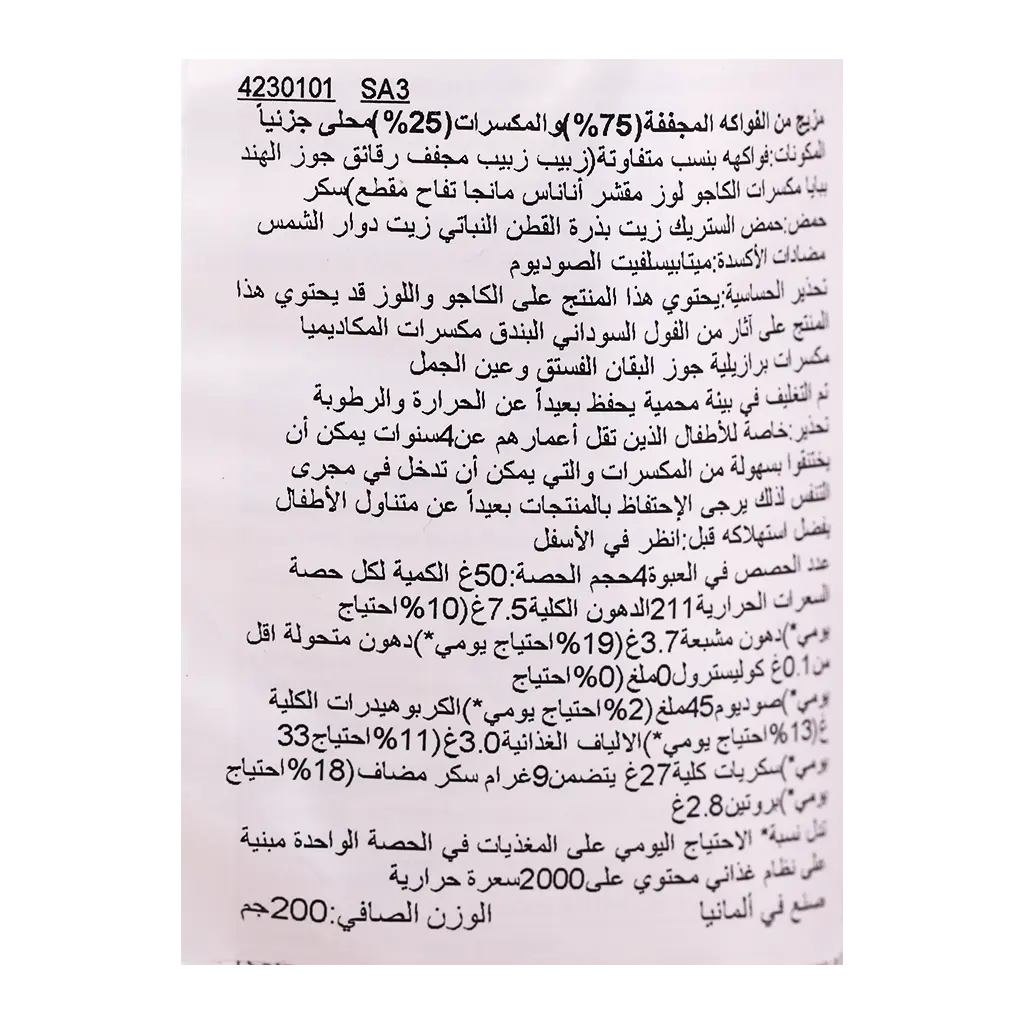 4230101 SA3
مزيج من الفواكه المجففة(75%)والمكسرات(25%)محلى جزئياً
المكونات:فواكهه بنسب متفاوتة(زبيب زبيب مجفف رقائق جوز الهند
ببايا مكسرات الكاجو لوز مقشر أناناس مانجا تفاح مقطع)سكر
حمض:حمض الستريك زيت بذرة القطن النباتي زيت دوار الشمس
مضادات الأكسدة:ميتابيسلفيت الصوديوم
تحذير الحساسية:يحتوي هذا المنتج على الكاجو واللوز قد يحتوي هذا
المنتج على آثار من الفول السوداني البندق مكسرات المكاديميا
مكسرات برازيلية جوز البقان الفستق وعين الجمل
تم التغليف في بيئة محمية يحفظ بعيداً عن الحرارة والرطوبة
تحذير:خاصة للأطفال الذين تقل أعمارهم عن4سنوات يمكن أن
يختنقوا بسهولة من المكسرات والتي يمكن أن تدخل في مجرى
التنفس لذلك يرجى الإحتفاظ بالمنتجات بعيداً عن متناول الأطفال
يفضل استهلاكه قبل:انظر في الأسفل
عدد الحصص في العبوة4حجم الحصة:50غ الكمية لكل حصة
السعرات الحرارية211الدهون الكلية7.5غ(10%احتياج
يومي*)دهون مشبعة3.7غ(19%احتياج يومي*)دهون متحولة اقل
من0.1غ كوليسترول0ملغ(0%احتياج
يومي*)صوديوم45ملغ(2%احتياج يومي*)الكربوهيدرات الكلية
غ(13%احتياج يومي*)الالياف الغذائية3.0غ(11%احتياج33
يومي*)سكريات كلية27غ يتضمن9غرام سكر مضاف(18%احتياج
يومي*)بروتين2.8غ
تدل نسبة* الاحتياج اليومي على المغذيات في الحصة الواحدة مبنية
على نظام غذائي محتوي على2000سعرة حرارية
صنع في ألمانيا الوزن الصافي:200جم